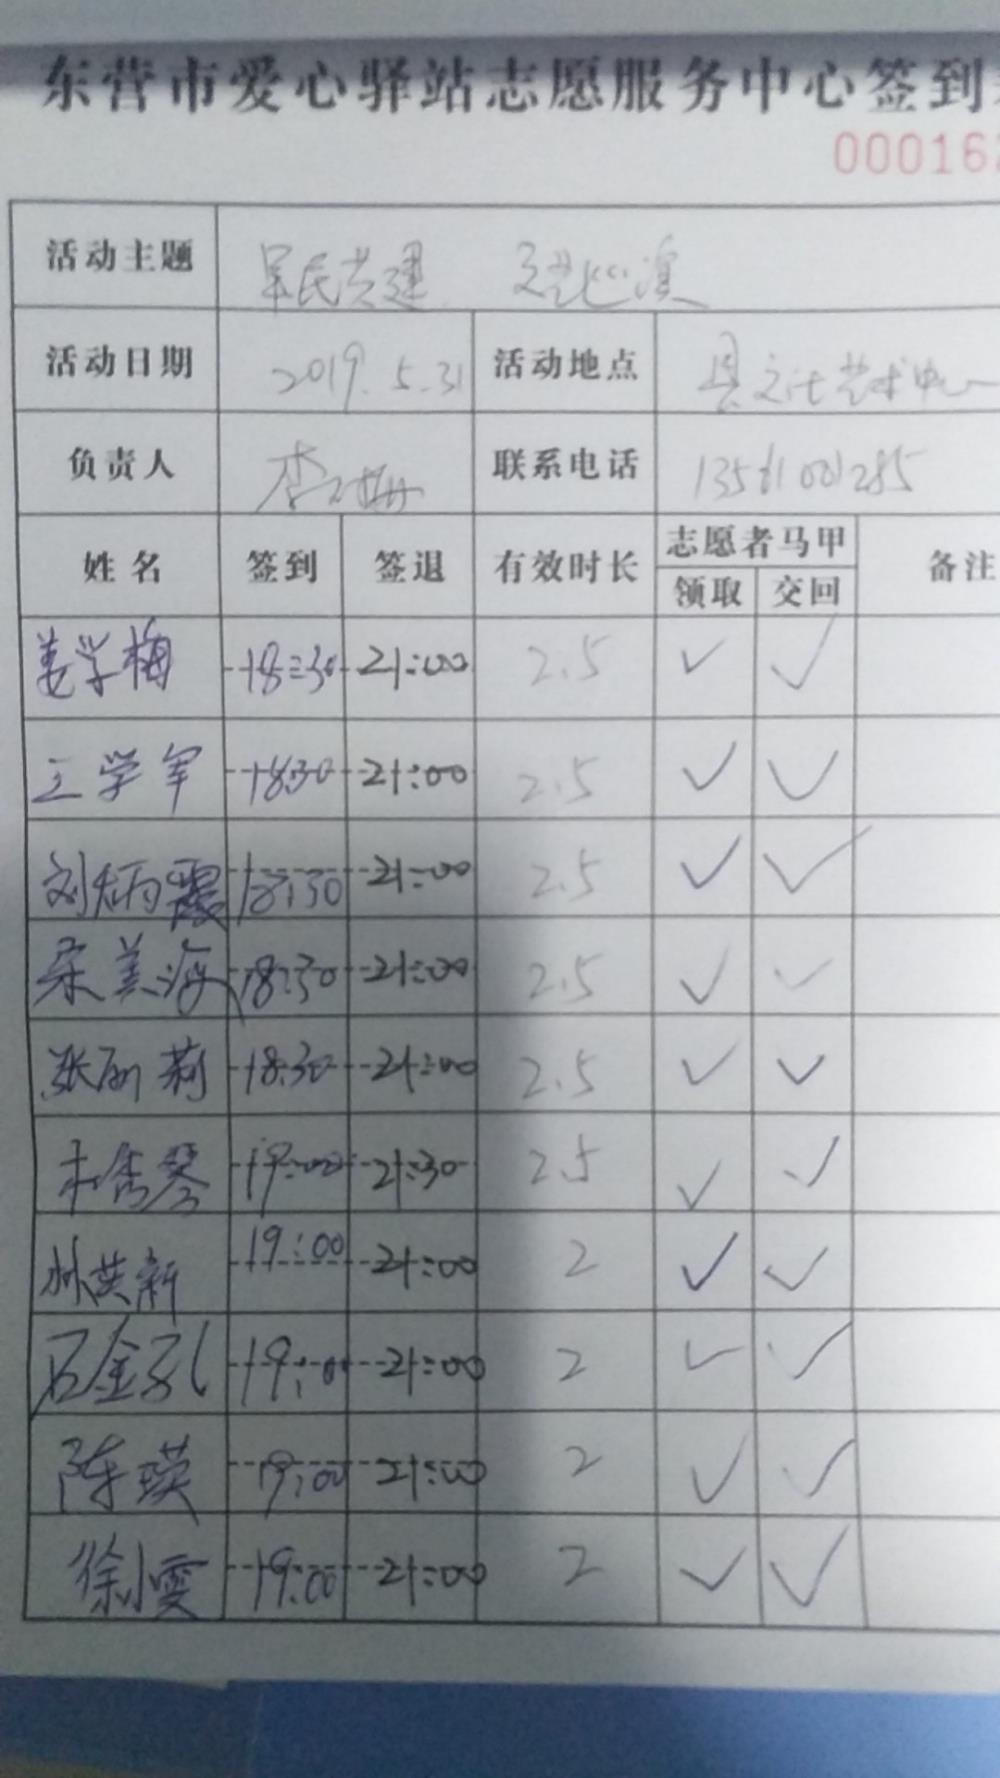 东营市爱心驿站志愿服务中心签到
00016
活动主题 军民共建
活动日期 2019.5.31 活动地点 县文化艺术中心
负责人 联系电话 13561001285
姓名 签到 签退 有效时长 志愿者马甲 备注
领取 交回
姜学梅 18:30 21:00 2.5 ✓ ✓
王学军 18:30 21:00 2.5 ✓ ✓
刘炳霞 18:30 21:00 2.5 ✓ ✓
宋美海 18:30 21:00 2.5 ✓ ✓
张丽莉 18:30 21:00 2.5 ✓ ✓
秀琴 19:00 21:30 2.5 ✓ ✓
林英新 19:00 21:00 2 ✓ ✓
石金 19:00 21:00 2 ✓ ✓
陈瑛 19:00 21:00 2 ✓ ✓
徐小雯 19:00 21:00 2 ✓ ✓